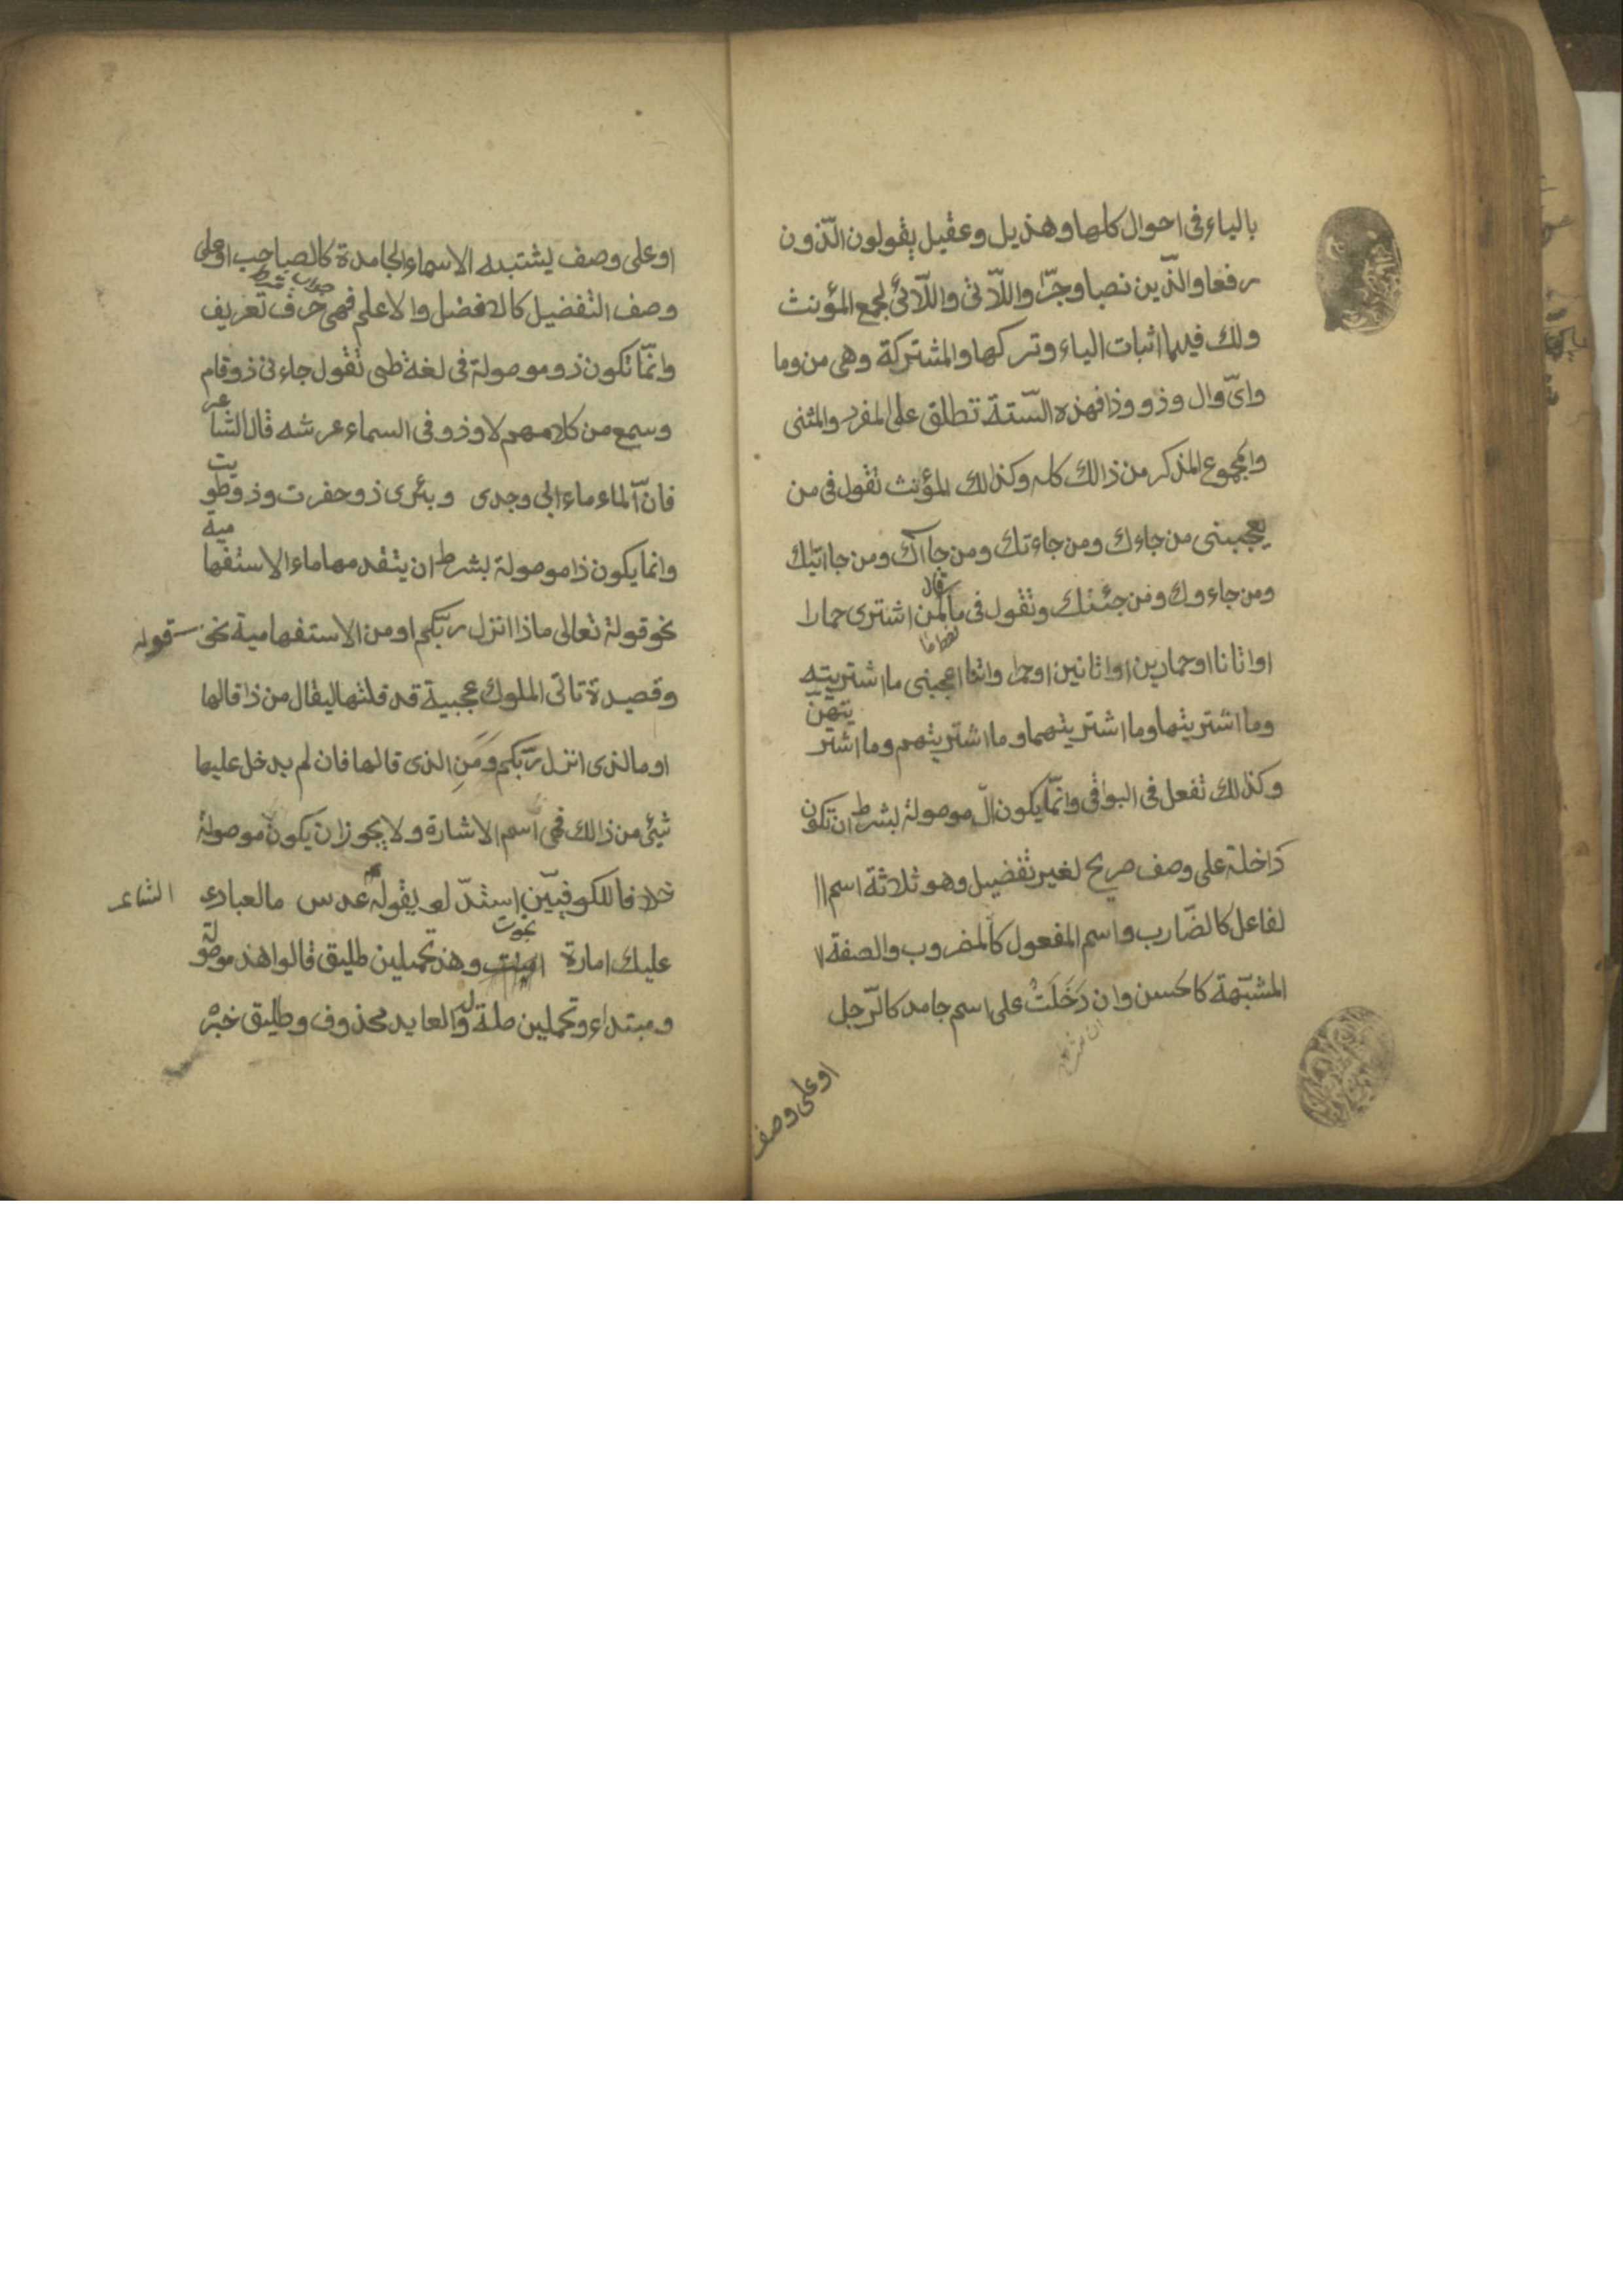 بالياء فى احوال كلها وهذيل وعقيل يقولون الّذون
رفعا والذّين نصبا وجرّا واللّاتى واللّائى لجمع المؤنث
ولك فيهما اثبات الياء وتركها والمشتركة وهى من وما
واىّ وال وذو وذا فهذه الستّة تطلق على المفرد والمثنى
والمجموع المذكر من ذالك كله وكذلك المؤنث تقول فى من
يعجبنى من جاءك ومن جاءتك ومن جاآك ومن جاءتاك
ومن جاءوك ومن جئنك وتقول فى ما لمن قال اشترى حمارا
او اتانا او حمارين او اتانين او حمرا واتنا اعجبنى ما اشتريته
وما اشتريتها وما اشتريتهما وما اشتريتهم وما اشتريتهنّ
وكذلك تفعل فى البواقى وانّما يكون الّ موصولة بشرط ان تكون
داخلة على وصف صريح لغير تفضيل وهو ثلاثة اسم ا
لفاعل كالضّارب واسم المفعول كالمضروب والصفة
المشبّهة كالحسن وان دَخَلَتْ على اسم جامد كالرّجل
او على وصف
او على وصف يشتبه الاسماء الجامدة كالصاحب او على
جواب شرط
وصف التفضيل كالافضل والاعلم فهى حرف تعريف
وانّما تكون ذو موصولة فى لغة طى تقول جاءنى ذو قام
وسمع من كلامهم لا وذو فى السماء عرشه قال الشاعر
فانّ الماء ماء ابى وجدى وبئرى ذو حفرت وذو طويت
وانما يكون ذا موصولة بشرط ان يتقدمها ماء الاستفهامية
نحو قولة تعالى ماذا انزل ربّكم او من الاستفهامية نحو قوله
وقصيدة تاتى الملوك عجبية قد قلتها ليقال من ذا قالها
او ما لذى انزل ربّكم وَمَنِ الذى قالها فان لم يدخل عليها
شيئ من ذالك فهى اسم الاشارة ولا يجوز ان يكون موصولة
خلافا للكوفييّن استدّلو بقوله الشاعر عدس ما لعباد
عليك امارة نجوت وهذ تحملين طليق قالوا هذ موصولة
ومبتداء وتحملين صلة له والعايد محذوف وطليق خبره